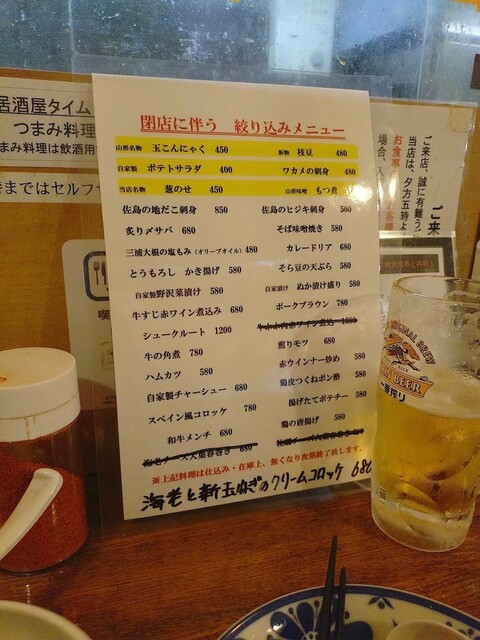 居酒屋タイム
つまみ料理
まみ料理は飲酒用
きまではセルフ
喫
閉店に伴う 絞り込みメニュー
山形名物 玉こんにゃく 450
新物 枝豆 480
自家製 ポテトサラダ 400
ワカメの刺身 480
当店名物 葱のせ 450
山形味噌 もつ煮
佐島の地だこ刺身 850
佐島のヒジキ刺身 500
炙り〆サバ 680
そば味噌焼き 580
三浦大根の塩もみ (オリーブオイル) 480
カレードリア 680
とうもろし かき揚げ 580
そら豆の天ぷら 580
自家製野沢菜漬け 580
自家漬け ぬか漬け盛り 580
牛すじ赤ワイン煮込み 680
ポークブラウン 780
シュークルート 1200
牛ホホ肉赤ワイン煮込 1680
牛の角煮 780
煎りモツ 680
ハムカツ 580
赤ウインナー炒め 580
自家製チャーシュー 680
鶏皮つくねポン酢 580
スペイン風コロッケ 780
揚げたてポテチー 580
和牛メンチ 680
鶏の唐揚げ 580
大葉春巻き 680
※上記料理は仕込み・在庫上、無くなり次第終了致します。
海老と新玉ねぎのクリームコロッケ 680
ご来
ご来店、誠に有難う
当店は、夕方五時よ
お食事
場合、入
ORIGINAL BREW
BEER
一番搾り